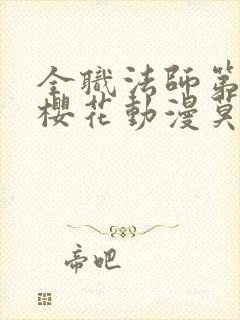 全職法師第
櫻花動漫莫
帝吧